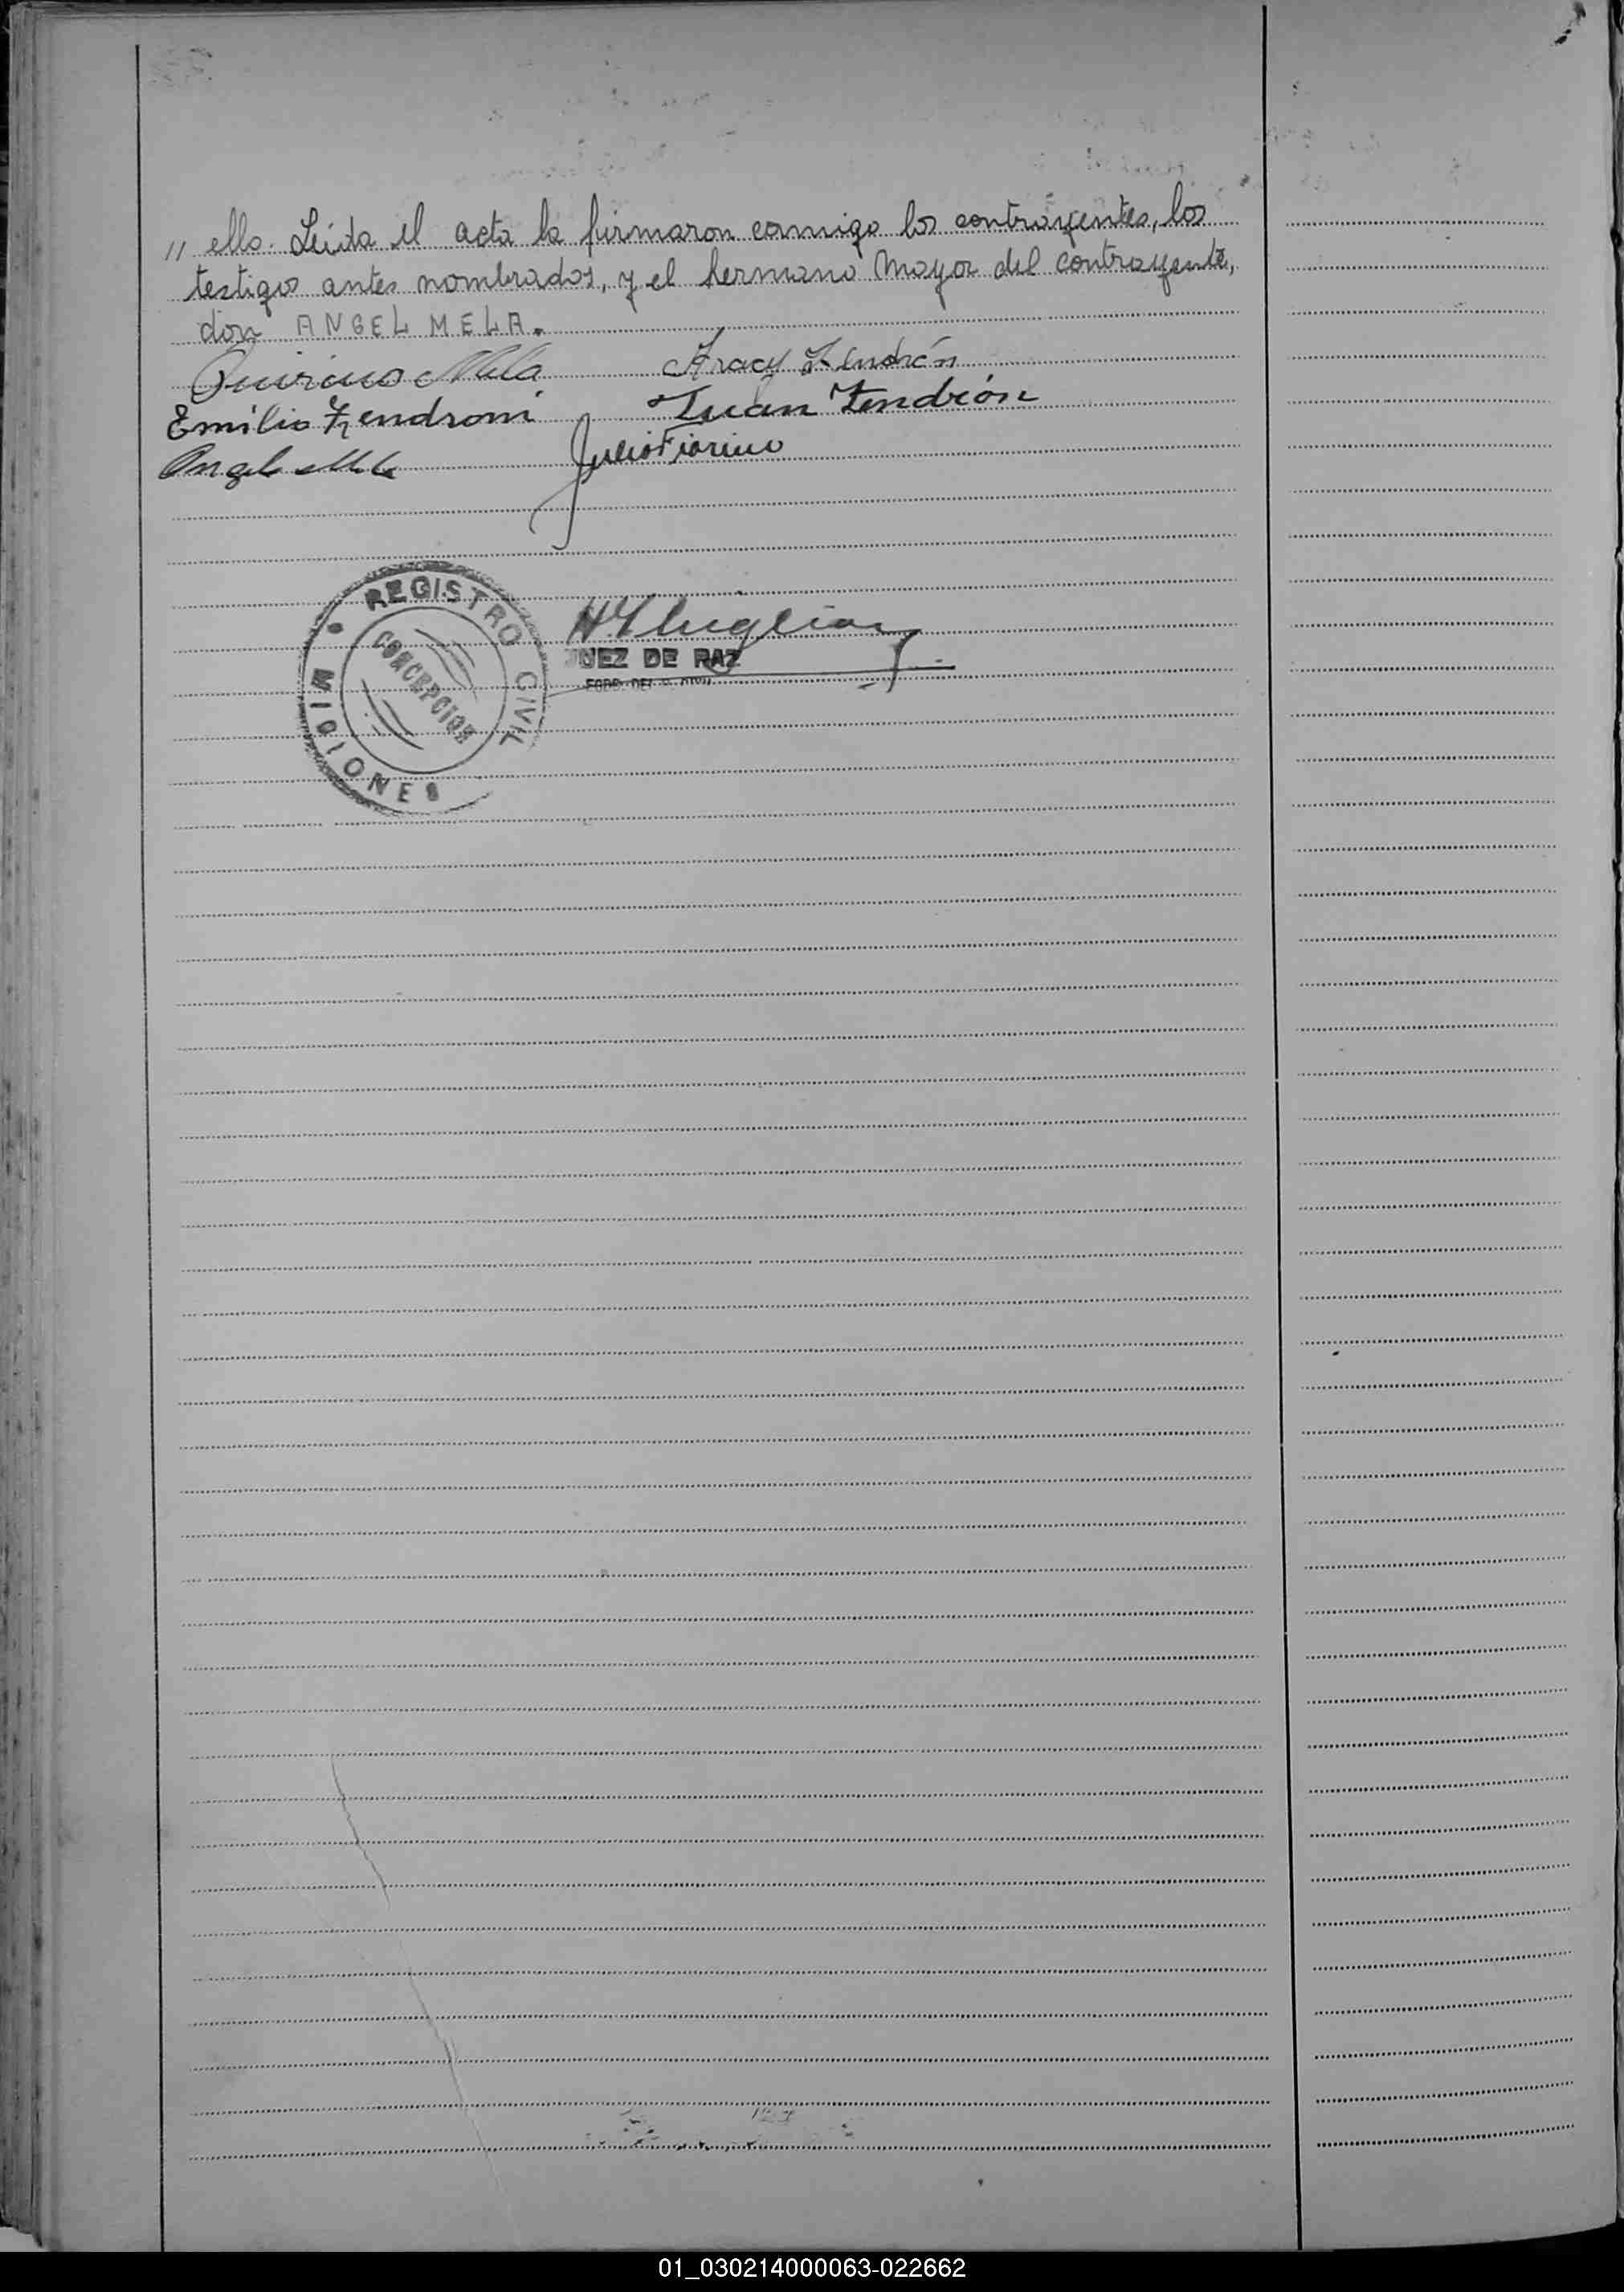 // ello. Leída el acta la firmaron conmigo los contrayentes, los
testigos antes nombrados, y el hermano mayor del contrayente,
don ANGEL MELA.
Quirino Mela Aracy Zendrón
Emílio Zendroni Juan Zendrión
Angel Mela Julio Fiorino
REGISTRO CIVIL
CONCEPCION
MISIONES
JUEZ DE PAZ
01_030214000063-022662